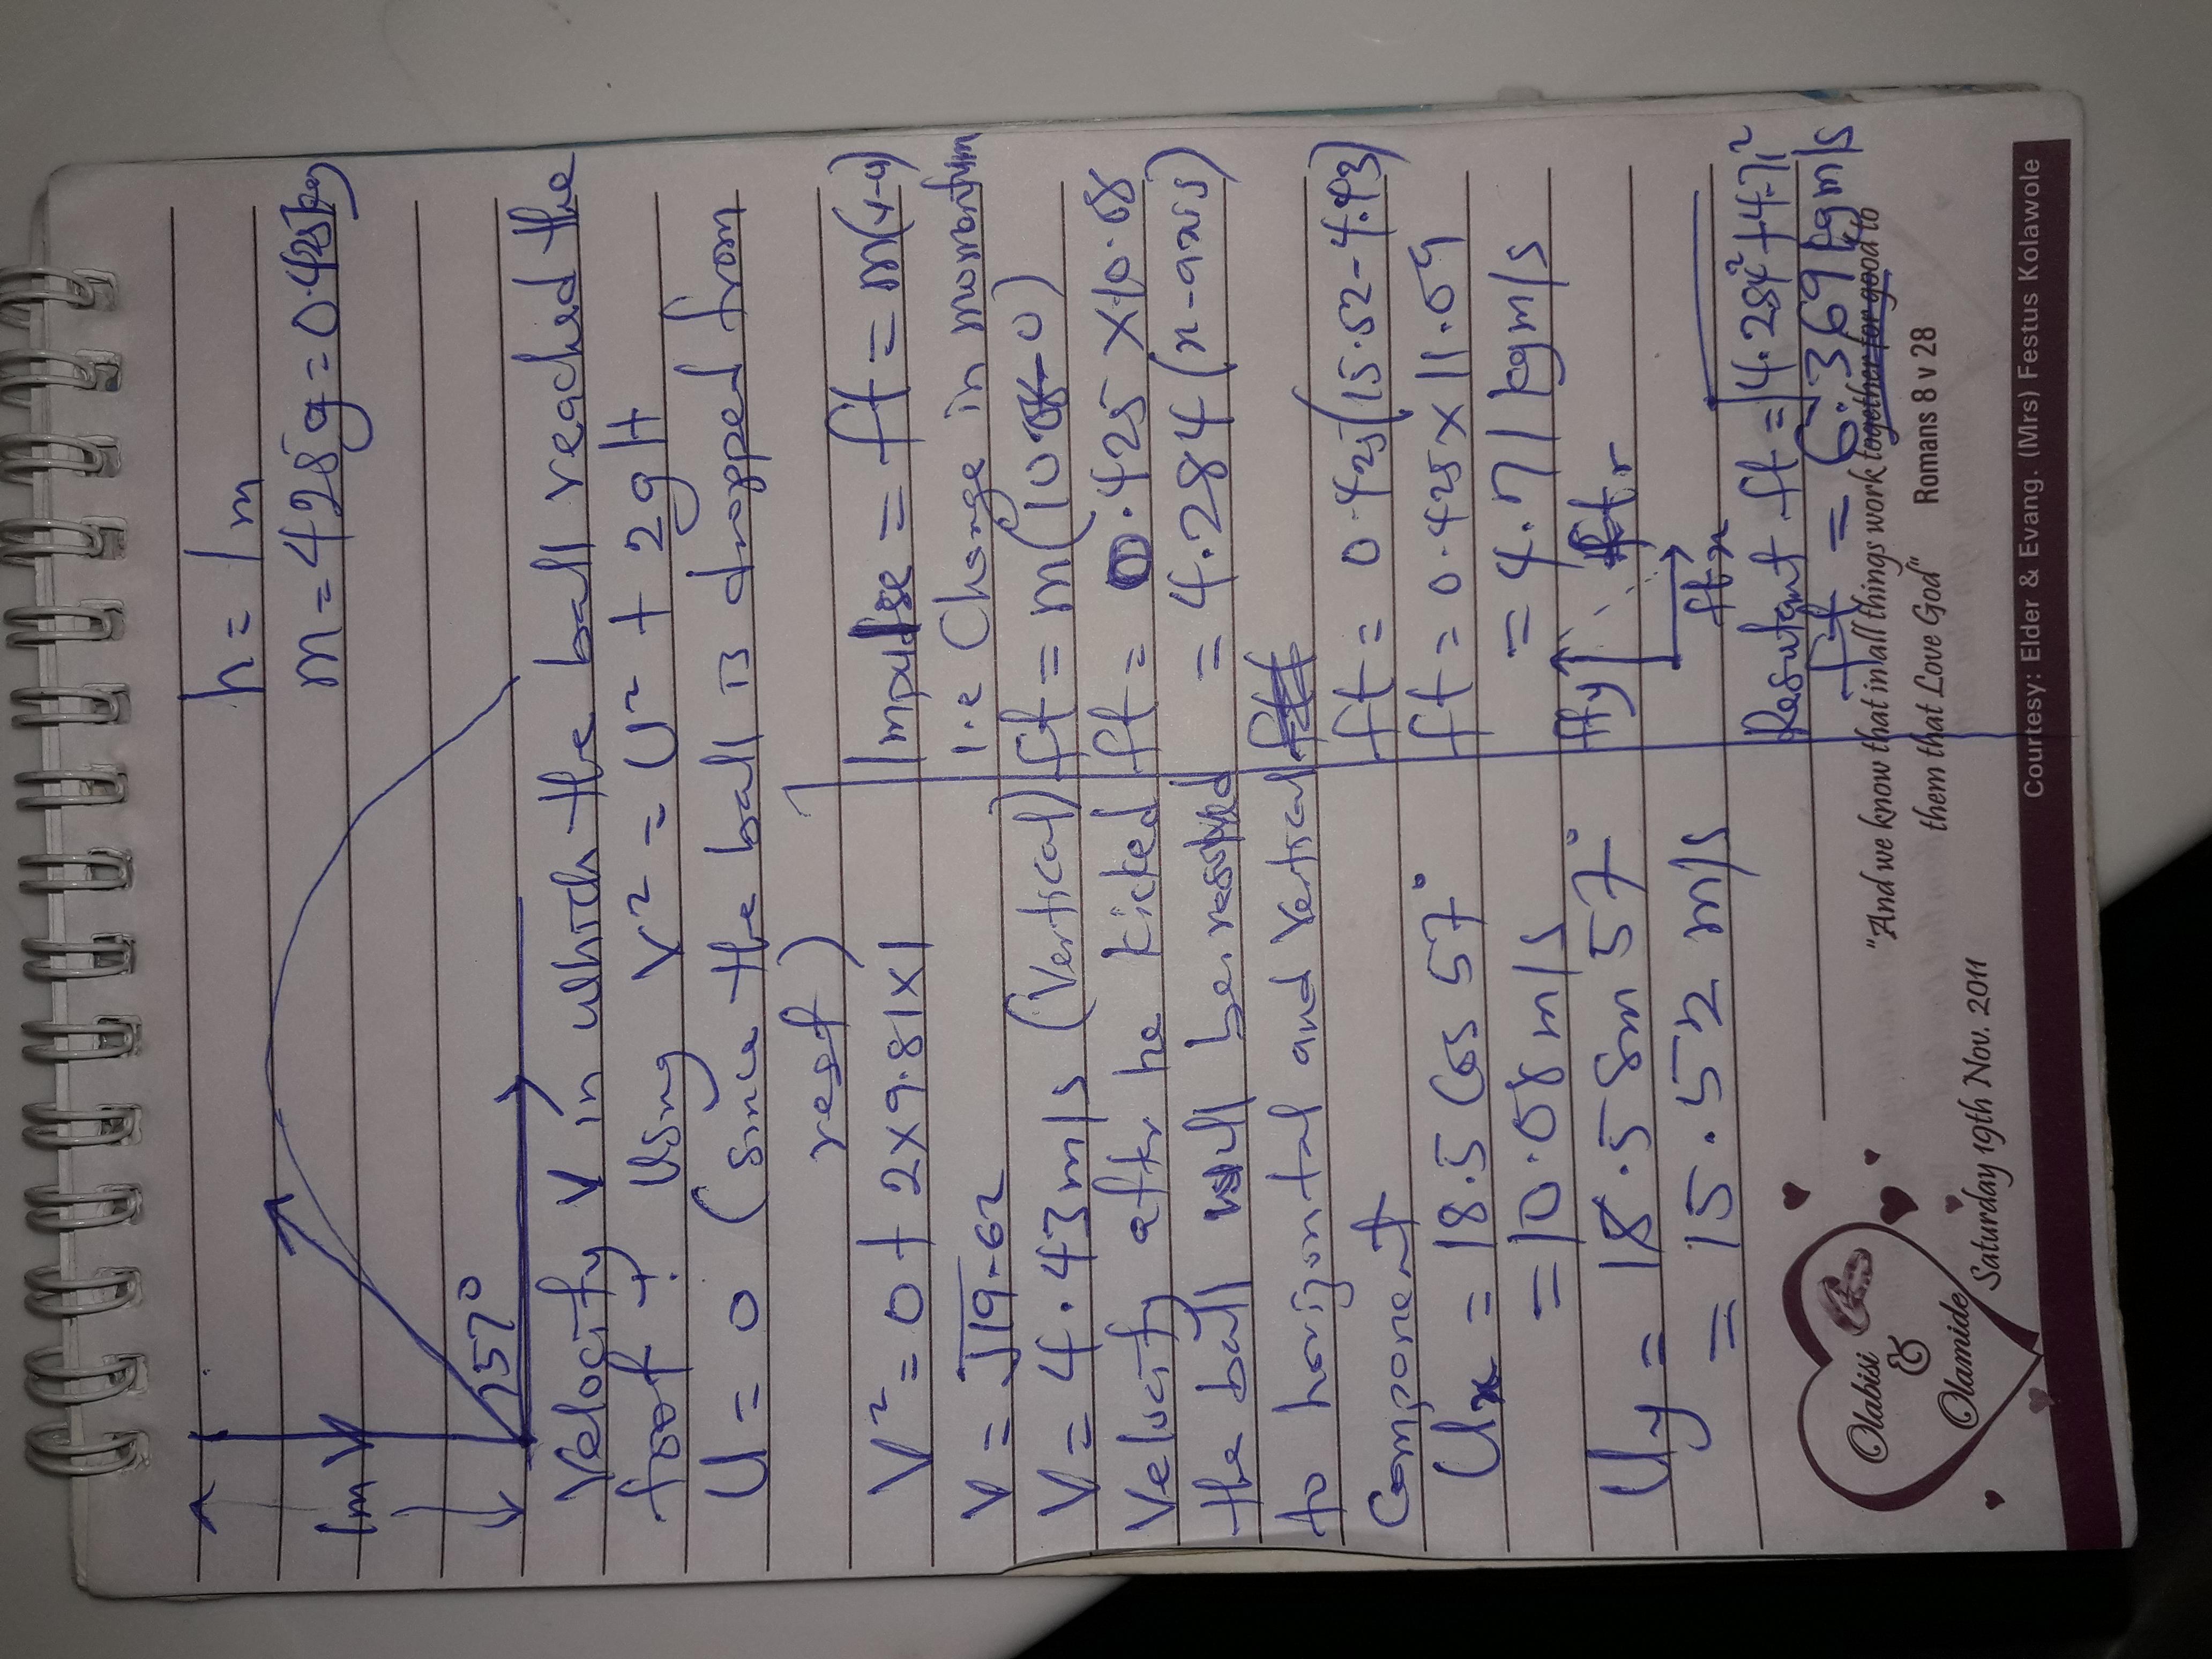 h = 1m
m = 425g = 0.425kg
1m V
57°
Velocity V in which the ball reached the
foot +: Using V² = U² + 2gH
U = 0 (Since the ball is dropped from
rest)
V² = 0 + 2×9.81×1
V = √19.62
V = 4.43m/s (Vertical)
Velocity after he kicked
the ball will be resolved
to horizontal and vertical
Component
Ux = 18.5 Cos 57°
= 10.08m/s
Uy = 18.5 Sin 57°
= 15.52 m/s
Impulse = ft = m(v-u)
i.e Change in momentum
ft = m(10.08-0)
ft = 0.425 × 10.08
= 4.284 (x-axis)
ft = 0.425(15.52-4.43)
ft = 0.425 × 11.09
= 4.71 kgm/s
fty ftr
ftx
Resultant ft = √4.284² + 4.71²
ft = 6.369 kgm/s
"And we know that in all things work together for good to
them that Love God"
Romans 8 v 28
Olabisi
&
Olamide
Saturday 19th Nov. 2011
Courtesy: Elder & Evang. (Mrs) Festus Kolawole